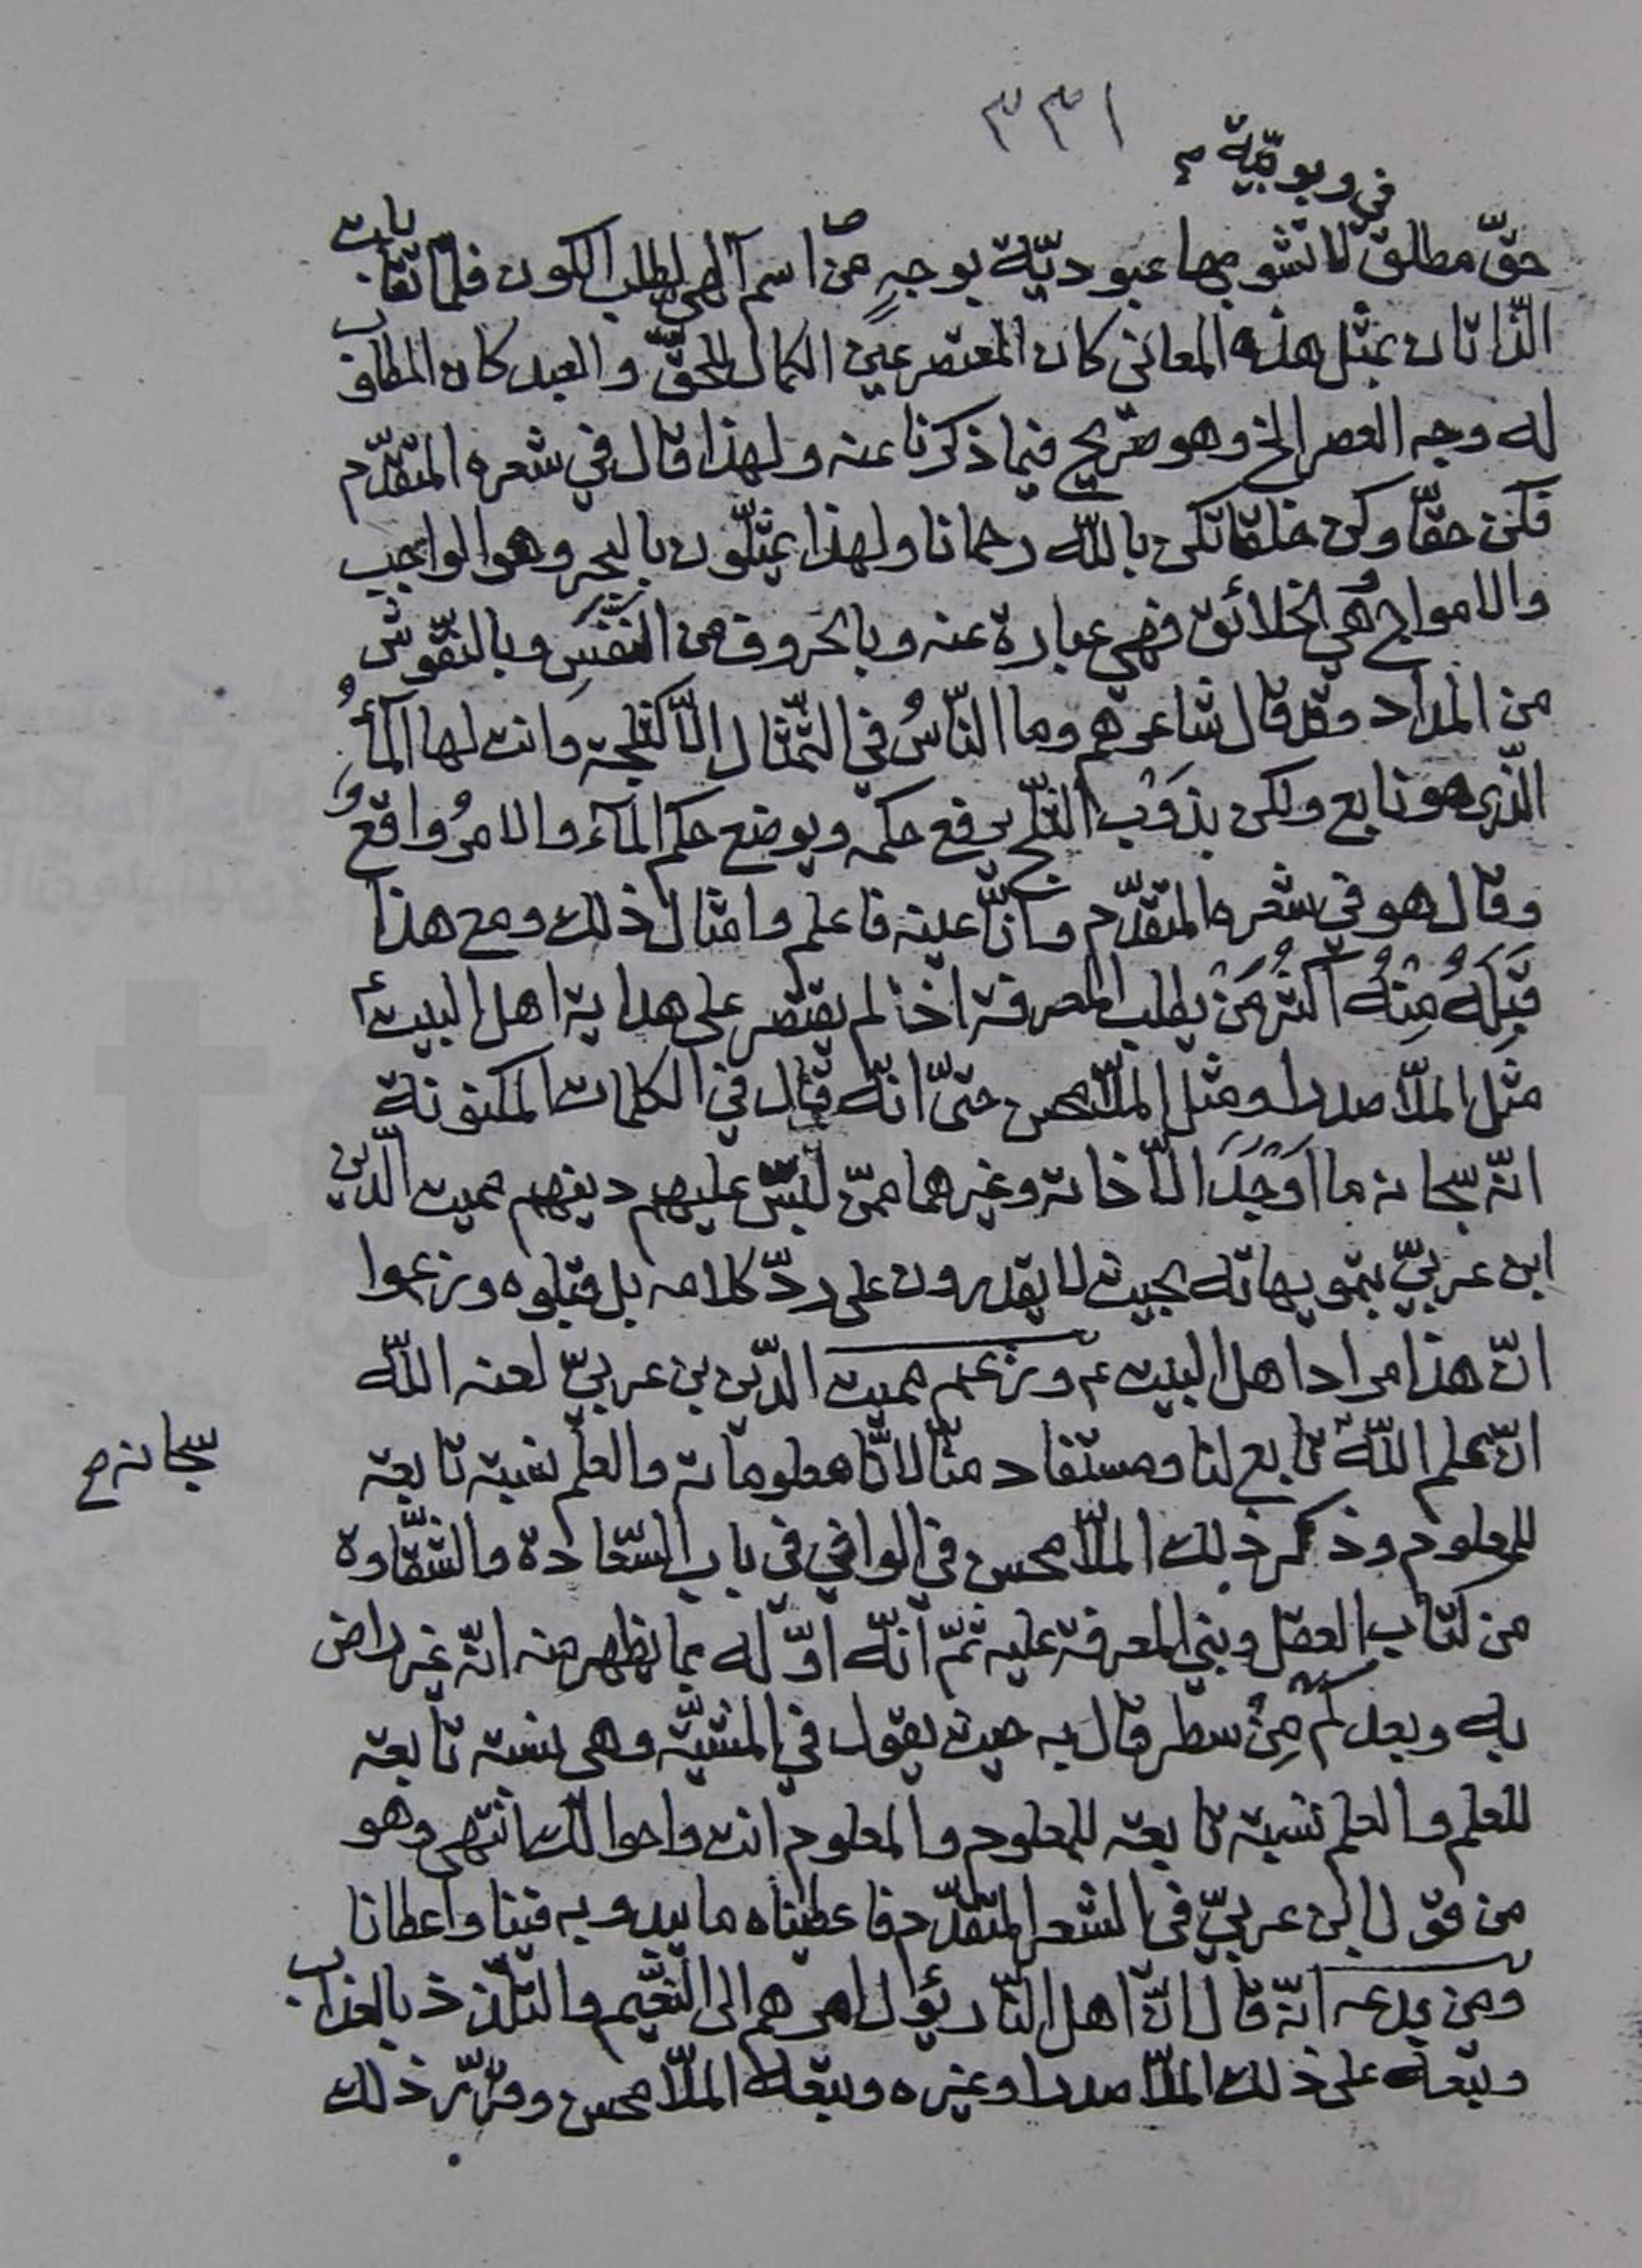 ٣٣١
في ربوبيّة م
حقّ مطلق لا تشوبها عبوديّة بوجهٍ من اسم آلهي يطلب الكون فلمّا تقابلت
الذّاتان بمثل هذه المعاني كان المعتصر عين الكمال للحقّ والعبد كان المطلوب
له وجد العصر الخ وهو صريح فيما ذكرنا عنه ولهذا قال في شعره المتقدّم
فكن حقّا وكن خلقا تكن بالله رحمانا ولهذا يمثّلون بالبحر وهو الواجب
والامواج هي الخلائق فهي عبارة عنه وبالحروف من النَفَسِ وبالنقوش
من المداد وقد قال شاعرهم وما النّاسُ في التّمثال الّا كثلجة وانت لها المآءُ
الّذي هو نابع ولكن بذَوْب الثلج يرفع حكمه ويوضع حكم المآء والامرُ واقعُ
وقال هو في شعره المتقدّم وانّا عينه فاعلم وامثال ذلك ومع هذا
قَبِلَهُ مِنْهُ اكثرُ مَنْ يطلب المعرفة اذا لم يقتصر على هداية اهل البيت ع
مثل الملّا صدرا ومثل الملّا محسن حتّى انّه قال في الكلمات المكنونة
انّه سبحانه ما اَوْجَدَ الّا ذاته وغيرهما ممّن لبّس عليهم دينهم مميت الدّين
ابن عربيّ بتمويهاته بحيث لا يقدرون على ردّ كلامه بل قبلوه وزعموا
انّ هذا مراد اهل البيت ع وزعم مميت الدّين بن عربيّ لعنه الله
انّ علم الله تابع لنا ومستفاد منّا لانّا معلوماته والعلم نسبة تابعة
سبحانه م
للمعلوم وذكر ذلك الملّا محسن في الوافي في باب السّعادة والشّقاوة
من كتاب العقل وبني المعرفة عليه ثمّ انّه اوّله بما يظهر منه انّه غير راض
به وبعد كَم مِنْ سطر قال به حيث يقول في المشيّة وهي نسبة تابعة
للعلم والعلم نسبة تابعة للمعلوم والمعلوم انت واحوالك انتهى وهو
من قول ابن عربيّ في الشعر المتقدّم فاعطيناه ما يبدو به فينا واعطانا
ومن بدعه انّه قال انّ اهل النّار يؤل امرهم الى النّعيم والتلذّذ بالعذاب
وتبعه على ذلك الملّا صدرا وغيره وتبعه الملّا محسن وقرّر ذلك